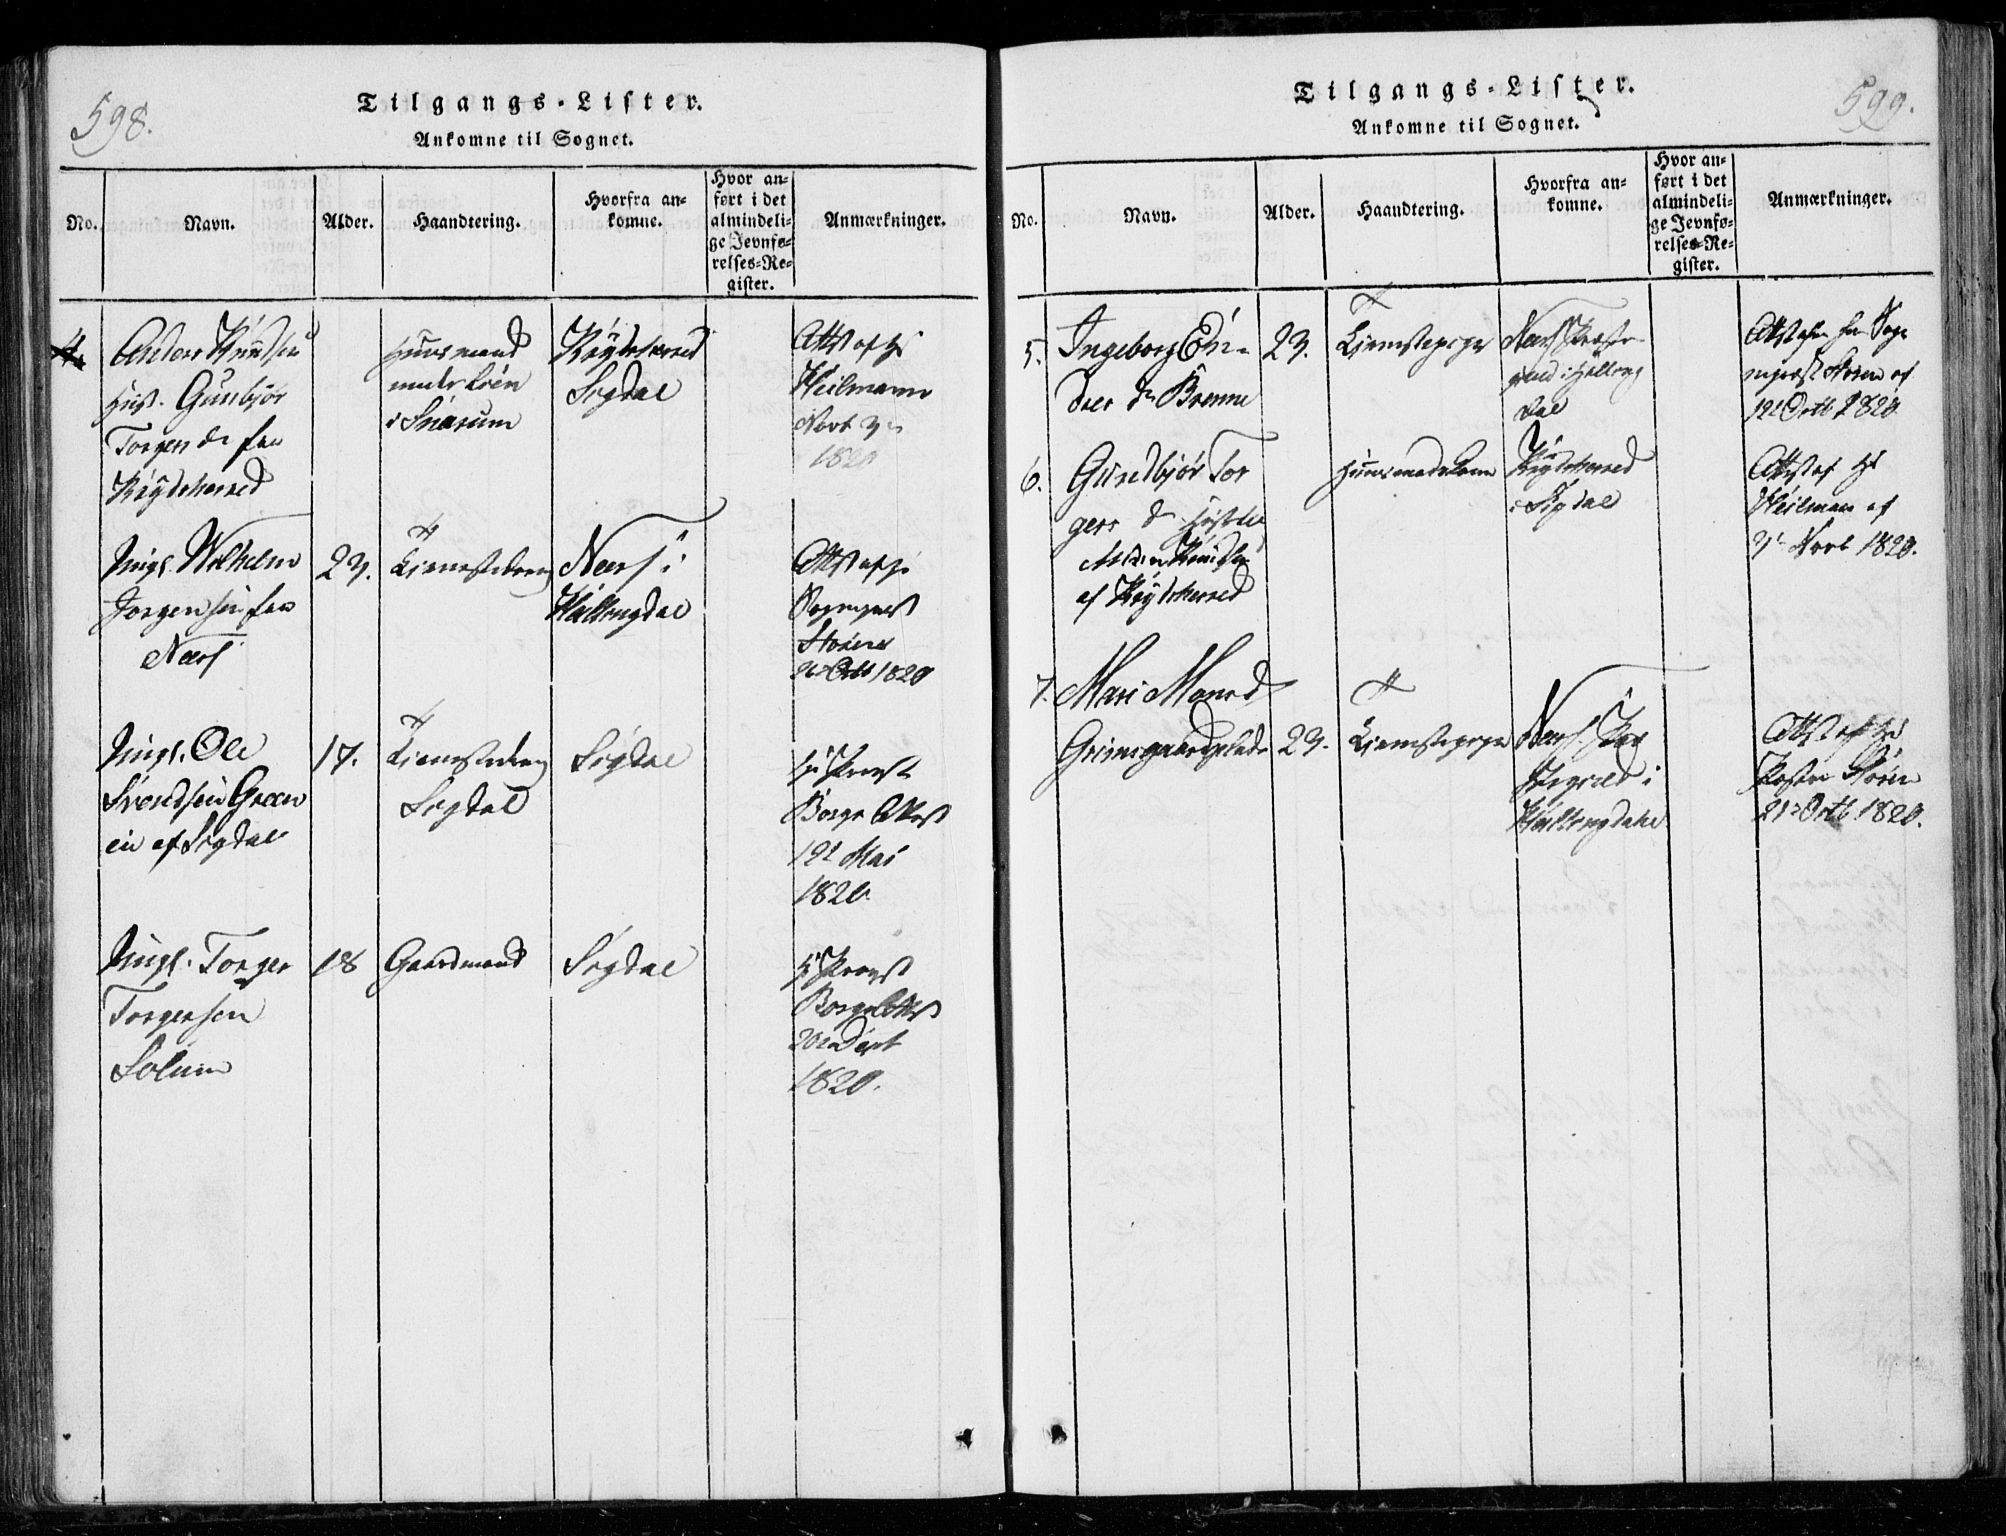 598.
Tilgangs-Lister.
Ankomne til Sognet.
No.
Navn.
Alder.
Haandtering.
Hvorfra an-
komne.
Hvor an-
ført i det
almindeli-
ge Jevnfø-
relses-Re-
gister.
Anmærkninger.
4.
Anders Knudsen
Hust. Gunbjør
Torgers dr fra
Krydsherred
Huusmand
i Snarum
Krydsherred
Sigdal
Attst af Hr
Heilmann
Novb 3
1820
Ungk. Wilhelm
Jorgensen fra
Næss
23.
Tienestedreng
Næss i
Hallingdal
Attst af Hr
Sogneprest
Støren
Octb 1820
Ungk. Ole
Svendsen Green
en af Sigdal
17.
Tienestedreng
Sigdal
Sigdal
Hr Provst
Borge Attest
19 Mai
1820.
Ungk. Torger
Torgersen
Solum
18
Gaardmand
Sigdal
Hr Provst
Borge Attest
20 Sept
1820.
599.
Tilgangs-Lister.
Ankomne til Sognet.
No.
Navn.
Alder.
Haandtering.
Hvorfra an-
komne.
Hvor an-
ført i det
almindeli-
ge Jevnfø-
relses-Re-
gister.
Anmærkninger.
5.
Ingeborg En-
ders dr Brenne
23.
Tienestepige
Næss Præste-
gield i Halling
dal
Attst af Hr Sogn
neprest Støren af
19 Octb 1820
6.
Gundbjør Tor
gers dr Hustru
Anders Knudsen
af Krydsherred
Huusmandskone
Krydsherred
i Sigdal
Attst af Hr
Heilman af
3 Novb 1820.
7.
Mari Monsd
Grimsgaardplads
23.
Tienestepige
Næss Præ
stegield i
Hallingdahl
Attst af Hr
Pastor Støren
21 Octb 1820.